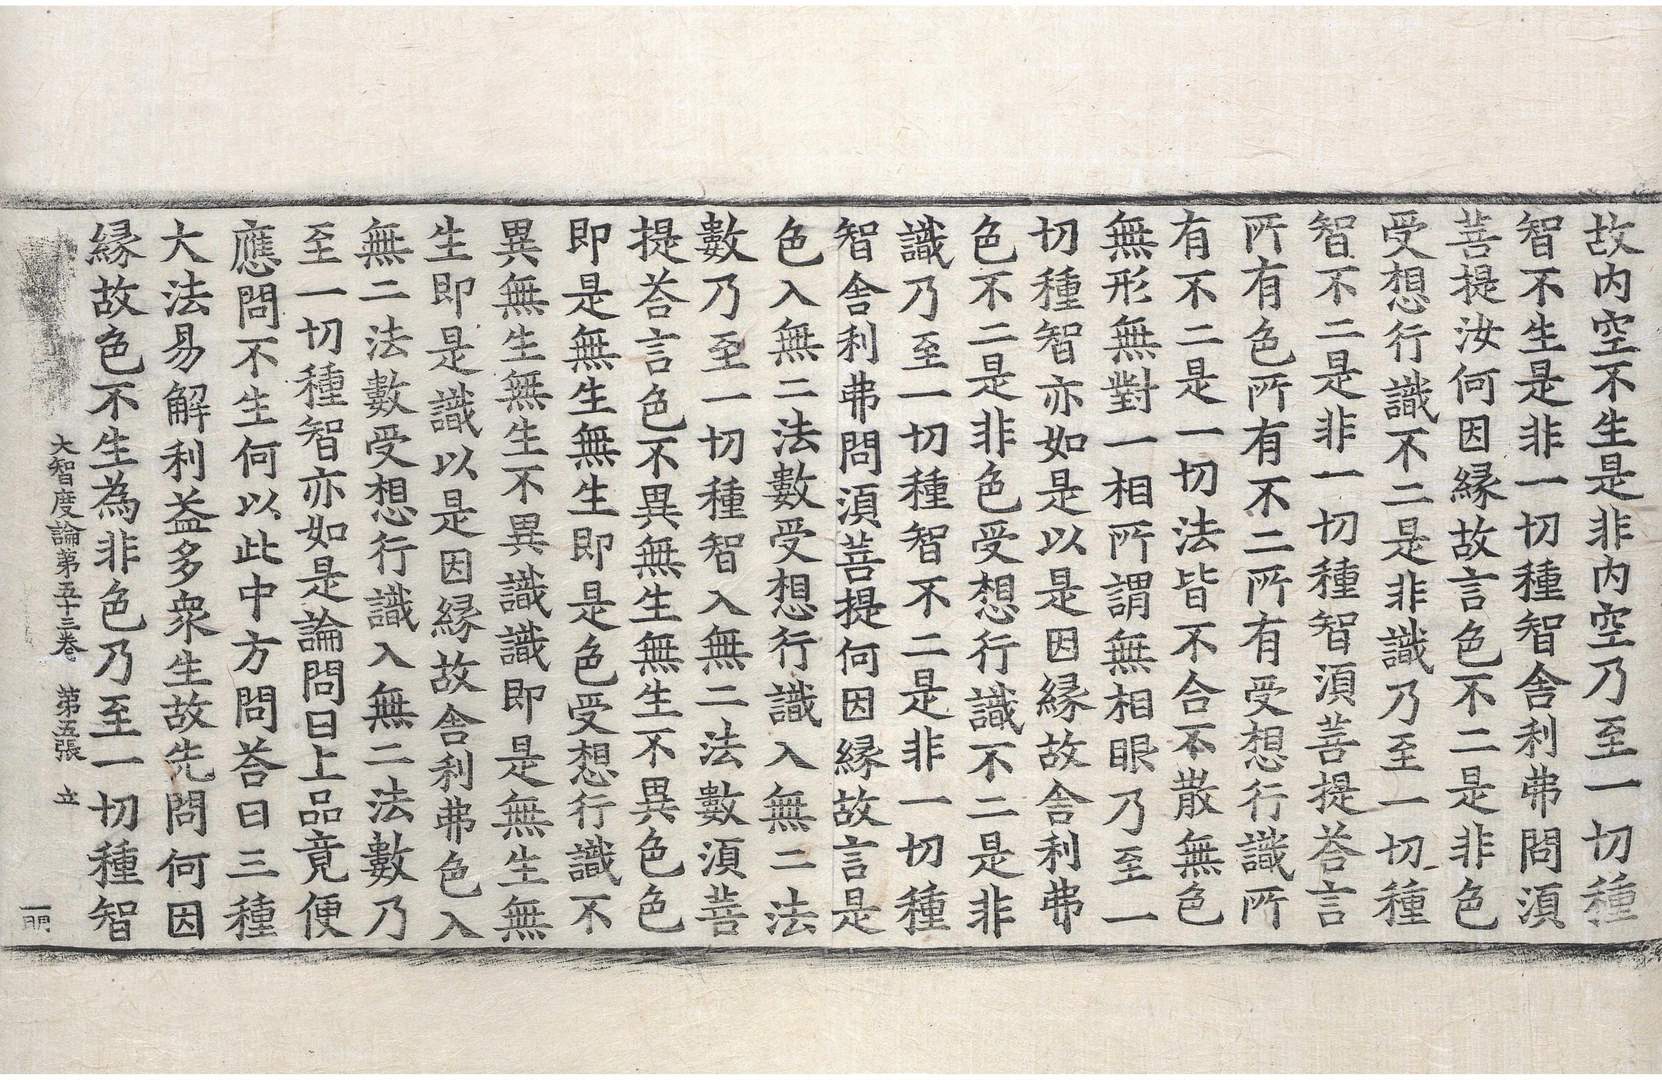 故内空不生是非内空乃至一切種
智不生是非一切種智舎利弗問湏
菩提汝何因縁故言色不二是非色
受想行識不二是非識乃至一切種
智不二是非一切種智湏菩提荅言
所有色所有不二所有受想行識所
有不二是一切法皆不合不散無色
無形無對一相所謂無相眼乃至一
切種智亦如是以是因縁故舎利弗
色不二是非色受想行識不二是非
識乃至一切種智不二是非一切種
智舎利弗問湏菩提何因縁故言是
色入無二法數受想行識入無二法
數乃至一切種智入無二法數湏菩
提荅言色不異無生無生不異色色
即是無生無生即是色受想行識不
異無生無生不異識識即是無生無
生即是識以是因縁故舎利弗色入
無二法數受想行識入無二法數乃
至一切種智亦如是論問曰上品竟便
應問不生何以此中方問荅曰三種
大法易解利益多衆生故先問何因
縁故色不生為非色乃至一切種智
大智度論第五十三卷 第五張 立
一明